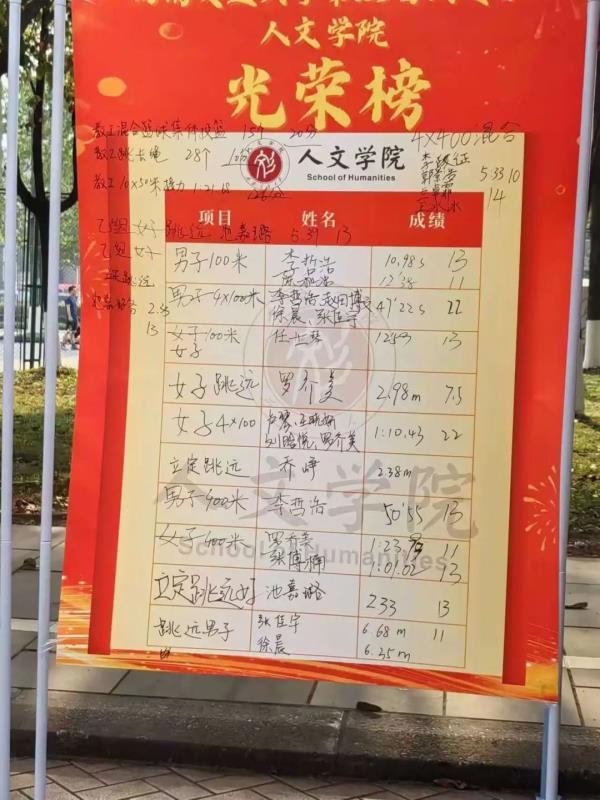 人文学院
光荣榜
教工混合篮球集体投篮 15个 20分
4×400混合
教工跳长绳 28个 10分
人文学院
School of Humanities
5:33 10
教工10×50米接力 1:21.68
14
项目 姓名 成绩
乙组 女子 跳远 池嘉璐 5.39 13
乙组 女子
立定跳远
男子100米 李哲浩 10.98s 13
12"38 11
男子4×100米 李哲浩 赵田博文 47"22s 22
徐晨、张佳宇
女子100米 13
女子
女子跳远 罗乔美 2.98m 7.5
女子4×100 1:10.43 22
罗乔美
立定跳远 乔峥 238m
男子400米 李哲浩 50"55 13
女子400米 罗乔美 1:23 11
张博楠 1:01.02 13
立定跳远女子 池嘉璐 233 13
跳远男子 张佳宇 6.68m 11
徐晨 6.35m
文学院
School of Humanities